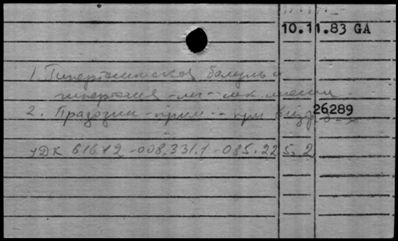 10.11.83 GA
1. Гипертоническая болезнь и
гипертония
2. Празозин - прим. -- при
26289
УДК 616.12-008.331.1-085.225.2